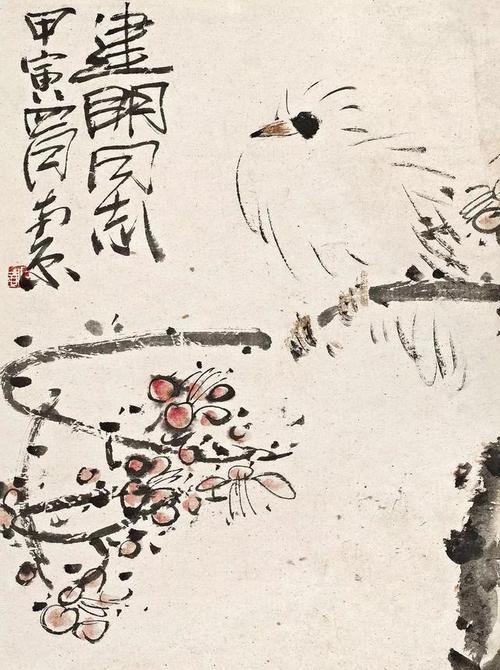 建明同志
甲寅四月南原